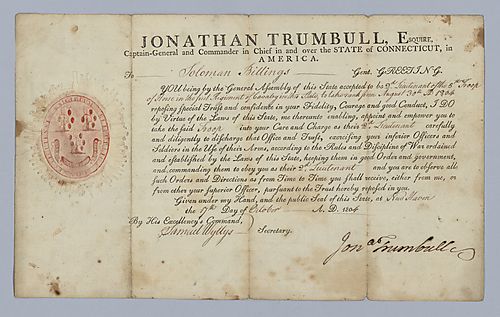 JONATHAN TRUMBULL, Esquire,
Captain-General and Commander in Chief in and over the STATE of CONNECTICUT, in
AMERICA.
To Soloman Billings Gent. GREETING.
YOU being by the General Assembly of this State accepted to be 2d. Lieutenant of the 5th Troop
of Horse in the first Regiment of Cavalry in this State, to take rank from August 30th A.D. 1804
reposing special Trust and Confidence in your Fidelity, Courage and good Conduct, I DO
by Virtue of the Laws of this State, me thereunto enabling, appoint and empower you to
take the said Troop into your Care and Charge as their 2d. Lieutenant carefully
and diligently to discharge that Office and Trust, exercising your inferior Officers and
Soldiers in the Use of their Arms, according to the Rules and Discipline of War ordained
and established by the Laws of this State, keeping them in good Order and government,
and commanding them to obey you as their 2d. Lieutenant and you are to observe all
such Orders and Directions as from Time to Time you shall receive, either from me, or
from other your superior Officer, pursuant to the Trust hereby reposed in you.
Given under my Hand, and the public Seal of this State, at New Haven
the 17th Day of October A. D. 1804
By His Excellency's Command,
Samuel Wyllys Secretary.
Jonath Trumbull